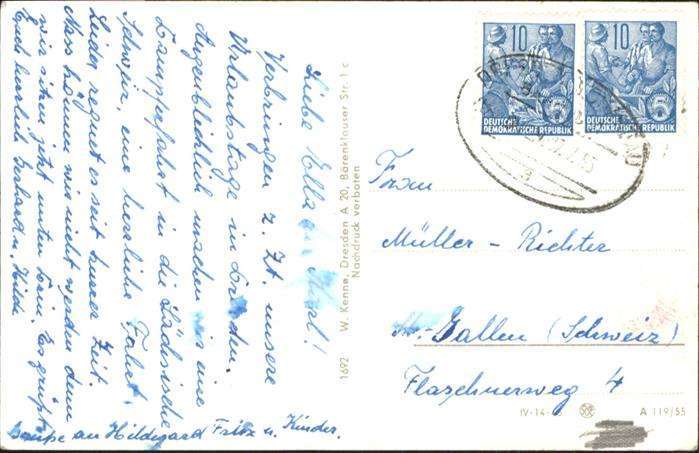 Liebe Ella u. Karl!
Verbringen z. Zt. unsere
Urlaubstage in Dresden.
Augenblicklich machen wir eine
Dampferfahrt in die Sächsische
Schweiz, eine herrliche Fahrt.
Leider regnet es seit kurzer Zeit.
Nass können wir nicht werden denn
wir sitzen jetzt unten drin. Es grüßt
Euch herzlich Gerhard u. Hilde
Grüße an Hildegard Fritz u. Kinder.
1692 W. Kenne, Dresden A 20, Bärenklauser Str. 1 c
Nachdruck verboten
10
DEUTSCHE
DEMOKRATISCHE REPUBLIK
5
10
DEUTSCHE
DEMOKRATISCHE REPUBLIK
5
Frau
Müller-Richter
St. Gallen (Schweiz)
Flaschnerweg 4
IV-14-
A 119/55